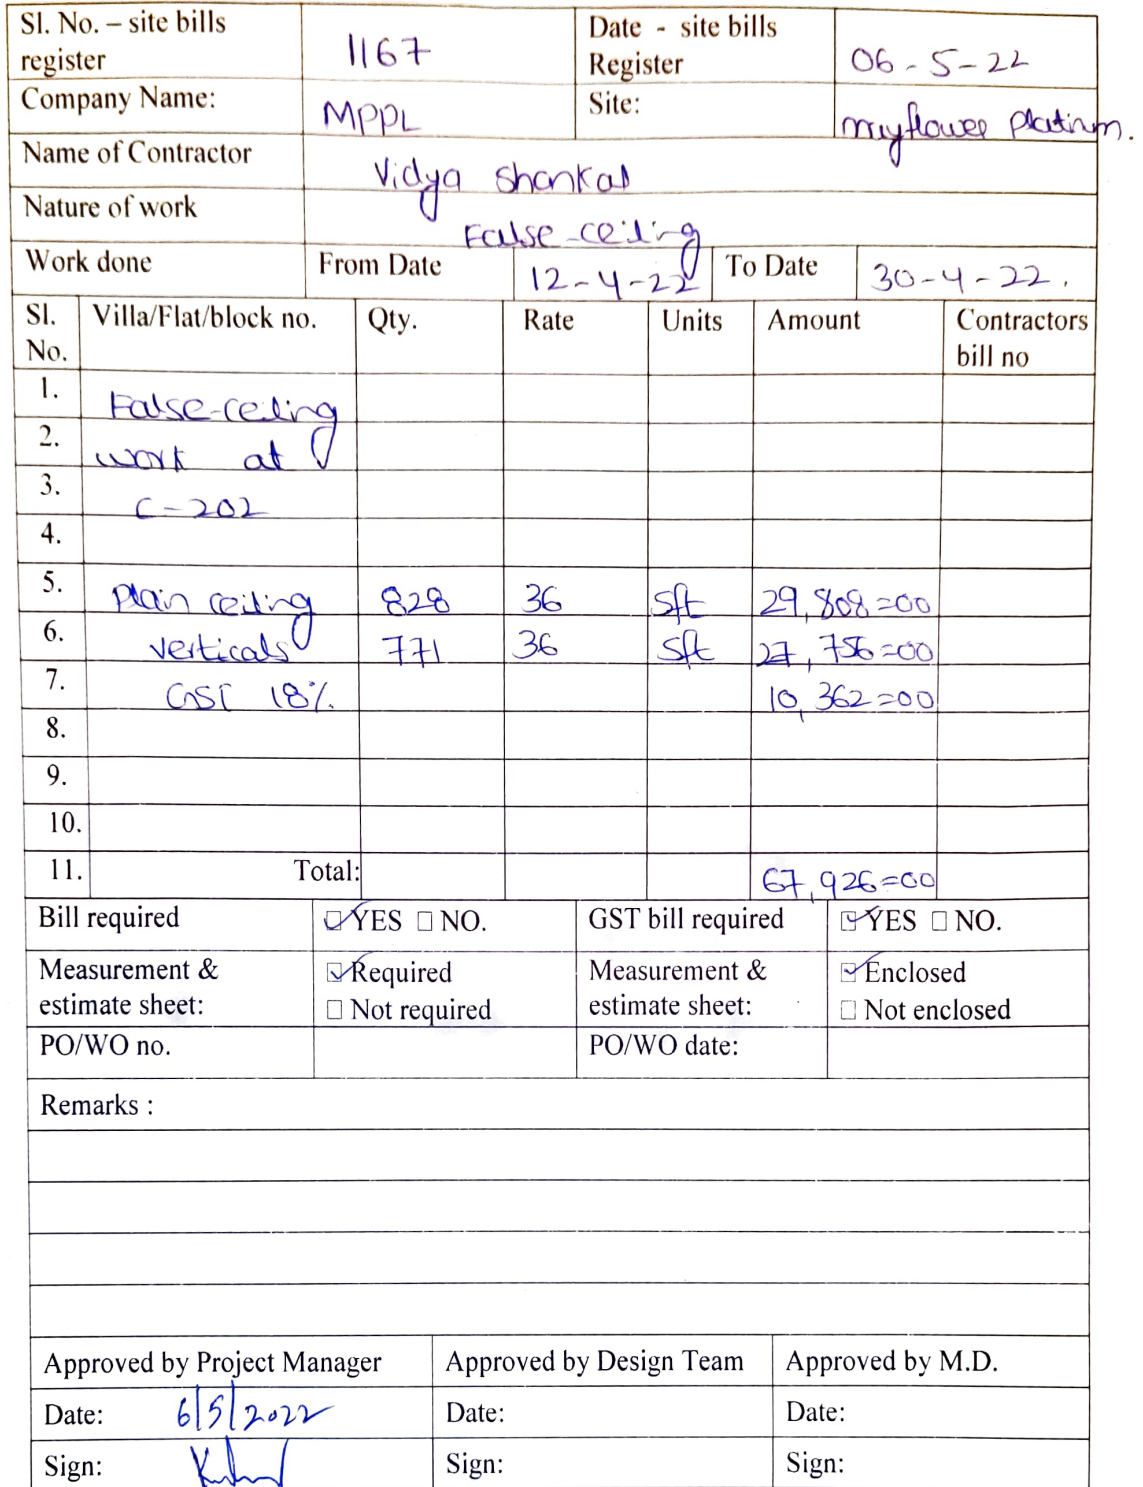 Sl. No. – site bills register 1167 Date - site bills Register 06-5-22
Company Name: MPPL Site: myflower platinum.
Name of Contractor Vidya Shankar
Nature of work False-ceiling
Work done From Date 12-4-22 To Date 30-4-22.
Sl. No. Villa/Flat/block no. Qty. Rate Units Amount Contractors bill no
1. False-ceiling
2. work at
3. C-202
4.
5. Plain ceiling 828 36 sft 29,808=00
6. verticals 771 36 sft 27,756=00
7. GST 18% 10,362=00
8.
9.
10.
11. Total: 67,926=00
Bill required ☑ YES ☐ NO. GST bill required ☑ YES ☐ NO.
Measurement & estimate sheet: ☑ Required ☐ Not required Measurement & estimate sheet: ☑ Enclosed ☐ Not enclosed
PO/WO no. PO/WO date:
Remarks :
Approved by Project Manager Approved by Design Team Approved by M.D.
Date: 6/5/2022 Date: Date:
Sign: Sign: Sign: